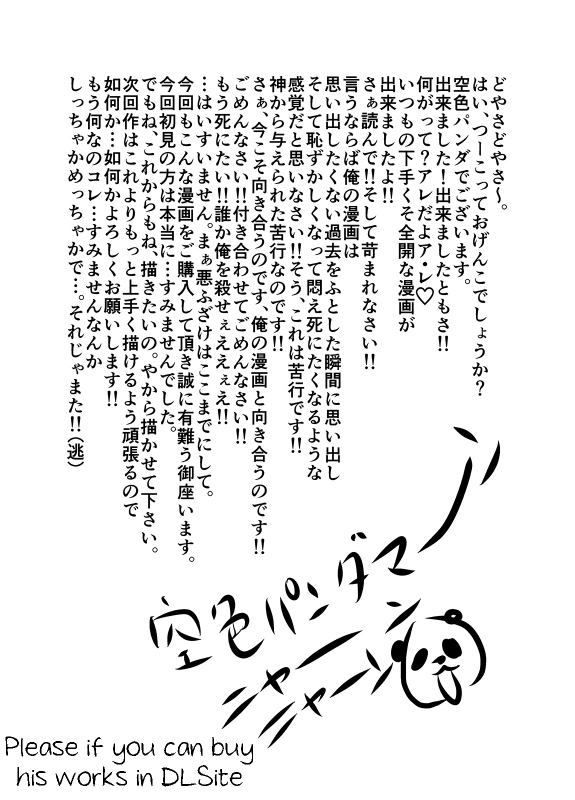 どやさどやさ～。
はい、つーこっておげんこでしょうか?
空色パンダでございます。
出来ました!出来ましたともさ!!
何がって?アレだよア・レ♡
いつもの下手くそ全開な漫画が
出来ましたよ!!
さぁ読んで!!そして苛まれなさい!!
言うならば俺の漫画は
思い出したくない過去をふとした瞬間に思い出し
そして恥ずかしくなって悶え死にたくなるような
感覚だと思いなさい!!そう、これは苦行です!!
神から与えられた苦行なのです!!
さぁ、今こそ向き合うのです、俺の漫画と向き合うのです!!
ごめんなさい!!付き合わせてごめんなさい!!
もう死にたい!!誰か俺を殺せぇええぇえ!!
…はいすいません。まぁ悪ふざけはここまでにして。
今回もこんな漫画をご購入して頂き誠に有難う御座います。
今回初見の方は本当に…すみませんでした。
でもね、これからもね、描きたいの。やから描かせて下さい。
次回作はこれよりもっと上手く描けるよう頑張るので
如何か…如何かよろしくお願いします!!
もう何なのコレ…すみませんなんか
しっちゃかめっちゃかで…。それじゃまた!!(逃)
空色パンダマーン
ニャーーン
ニャーン
Please if you can buy
his works in DLSite